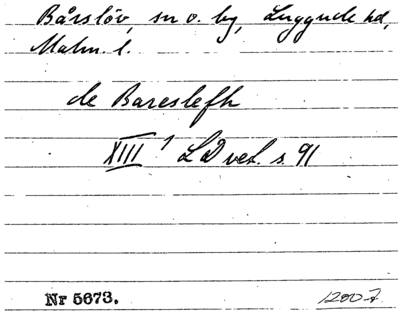 Bårslöv, sn o. by, Luggude hd,
Malm. l.
de Bareslefh
XIII¹ LD vet. s. 91
Nr 5673.
1200-t.